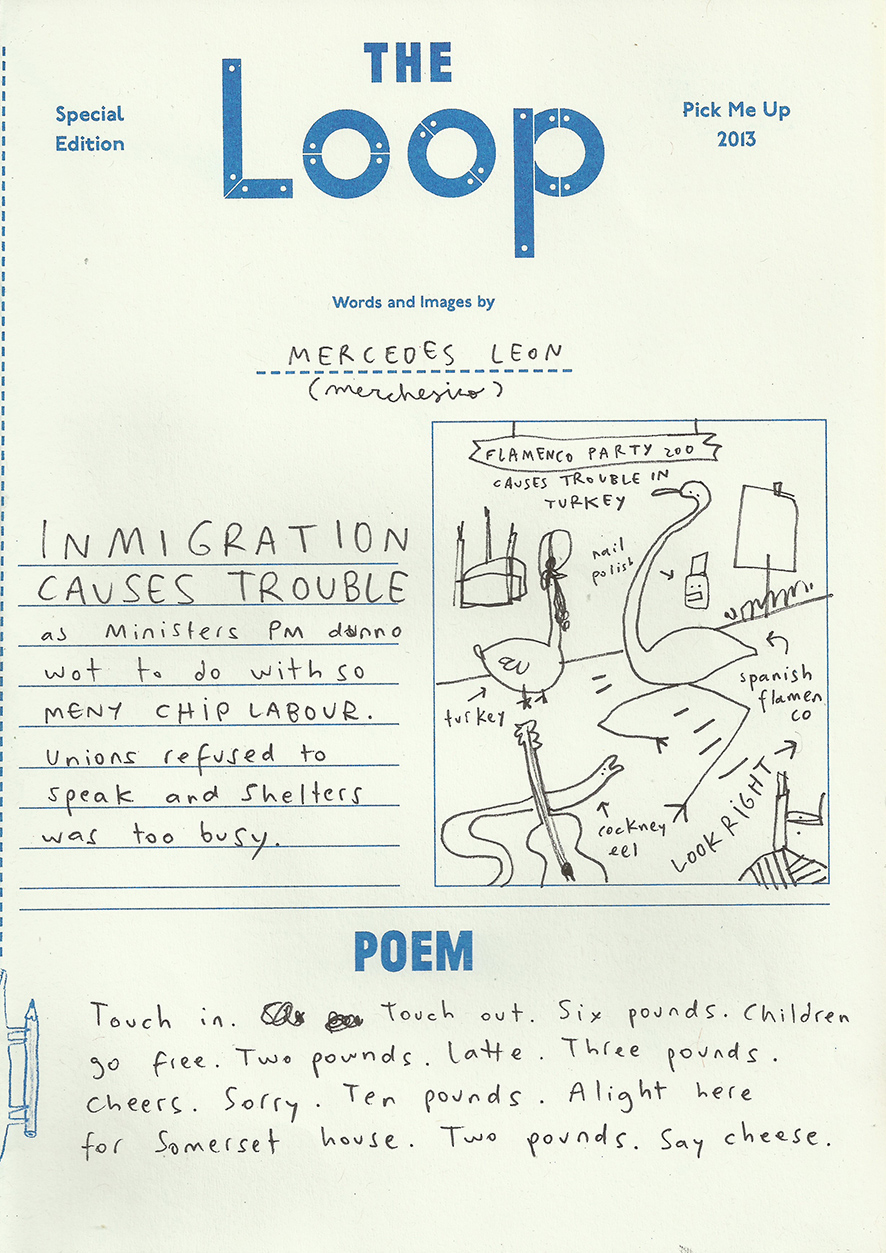 THE
Loop
Special
Edition
Pick Me Up
2013
Words and Images by
MERCEDES LEON
(merchesico)
INMIGRATION
CAUSES TROUBLE
as Ministers PM dunno
wot to do with so
MENY CHIP LABOUR.
Unions refused to
speak and shelters
was too busy.
FLAMENCO PARTY ZOO
CAUSES TROUBLE IN
TURKEY
nail
polish
turkey
spanish
flamen
co
cockney
eel
LOOK RIGHT
POEM
Touch in. Touch out. Six pounds. Children
go free. Two pounds. Latte. Three pounds.
Cheers. Sorry. Ten pounds. Alight here
for Somerset house. Two pounds. Say cheese.